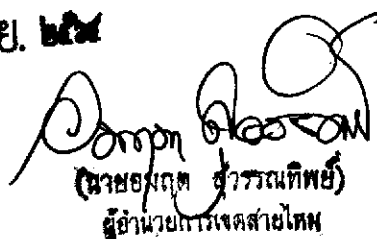 ย. ๒๕๖๔
(นายอมฤต สุวรรณทิพย์)
ผู้อำนวยการเขตสายไหม